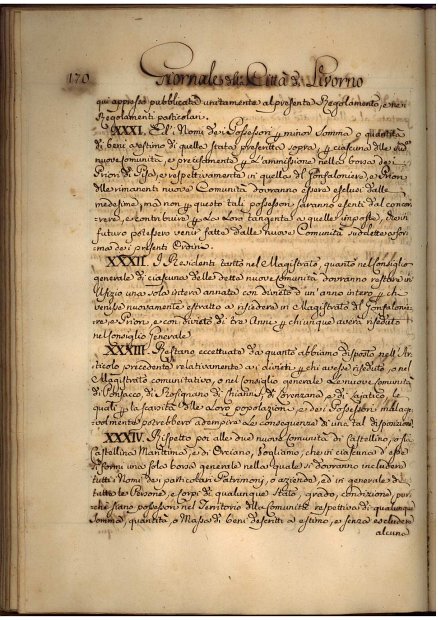 170 Giornale della Città di Livorno
qui appresso pubblicata unitamente al presente Regolamento, e nei
Regolamenti particolari.
XXXI. E i Nomi dei Possessori per minor Somma o quantità
di beni a estimo di quella stata prescritta sopra, per ciascuna delle due
nuove comunità, e precisamente per l'ammissione nella borsa dei
Priori di Pisa, e respettivamente in quella del Gonfaloniere, e Priori
delle rimanenti nuove Comunità dovranno essere esclusi dalle
medesime, ma non per questo tali possessori saranno esenti dal concor=
rere, e contribuire per la loro tangente a quelle imposte, che in
futuro potessero venir fatte dalle nuove Comunità sudette a for=
ma dei presenti Ordini.
XXXII. I Residenti tanto nel Magistrato, quanto nel Consiglio
generale di ciascuna delle dette nuove comunità dovranno restare in
Ufizio una sola intera annata con divieto d'un' anno intero per chi
venisse nuovamente estratto a risedere in Magistrato del Gonfalonie
re, e Priori, e con divieto di tre Anni per chiunque averà riseduto
nel Consiglio Generale.
XXXIII. Restano eccettuate da quanto abbiamo disposto nell' Ar=
ticolo precedente relativamente ai divieti per chi avesse riseduto, o nel
Magistrato comunitativo, o nel consiglio generale Le nuove Comunità
di Ponsacco, di Rosignano, di Chianni, di Lorenzana, e di Lajatico, le
quali per la scarsità delle Loro popolazioni, e dei Possessori malage
volmente potrebbero adempire le conseguenze di una tal disposizione
XXXIV. Rispetto poi alle due nuove comunità di Castellino, o sia
Castellina Marittima, e di Orciano, Vogliamo, che in ciascuna d'esse
si formi una sola borsa generale nella quale si dovranno includere
tutti i Nomi dei particolari Patrimoni, o aziende, ed in generale di
tutte le Persone, e corpi di qualunque Stato, grado, condizione, pur=
chè siano possessori nel Territorio della Comunità respettiva di qualunque
Somma, quantità, o Massa di beni descritti a estimo, e senza escludere
alcuna